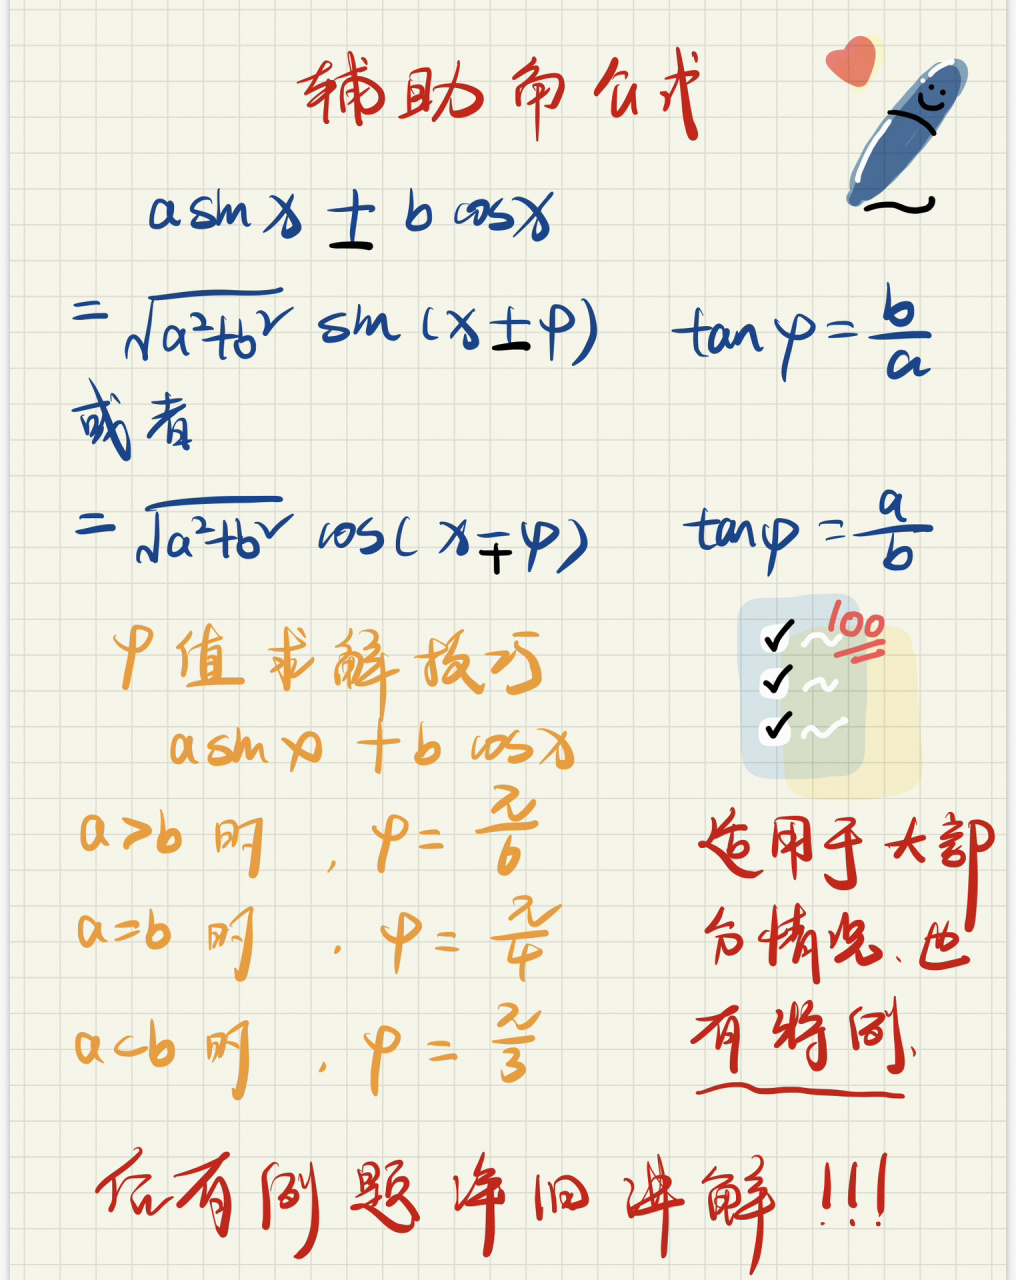 辅助角公式
a sin x ± b cos x
= √(a²+b²) sin(x ± φ) tan φ = b/a
或者
= √(a²+b²) cos(x ∓ φ) tan φ = a/b
φ值求解技巧
100
a sin x + b cos x
a>b时，φ = π/6
a=b时，φ = π/4
a<b时，φ = π/3
适用于大部
分情况、也
有特例、
后有例题详细讲解!!!